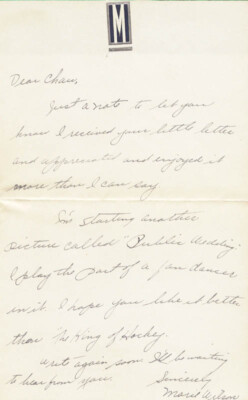 M
Dear Chaw,
Just a note to let you
know I received your little letter
and appreciate and enjoyed it
more than I can say.
I'm starting another
picture called "Public Wedding"
I play the part of a fan dancer
in it. I hope you like it better
than "The King of Hockey.
Write again soon I'll be waiting
to hear from you.
Sincerely
Marie Wilson